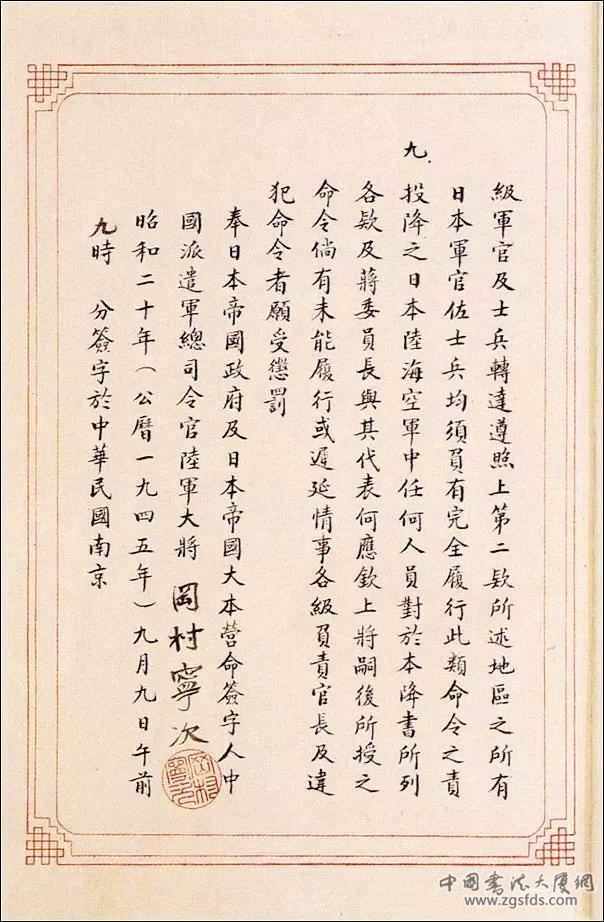 級軍官及士兵轉達遵照上第二欵所述地區之所有
日本軍官佐士兵均須負有完全履行此類命令之責
九.投降之日本陸海空軍中任何人員對於本降書所列
各欵及蔣委員長與其代表何應欽上將嗣後所授之
命令倘有未能履行或遲延情事各級負責官長及違
犯命令者願受懲罰
奉日本帝國政府及日本帝國大本營命簽字人中
國派遣軍總司令官陸軍大將 岡村寧次
昭和二十年（公曆一九四五年）九月九日午前
九時 分簽字於中華民國南京
中國書法大廈網
www.zgsfds.com